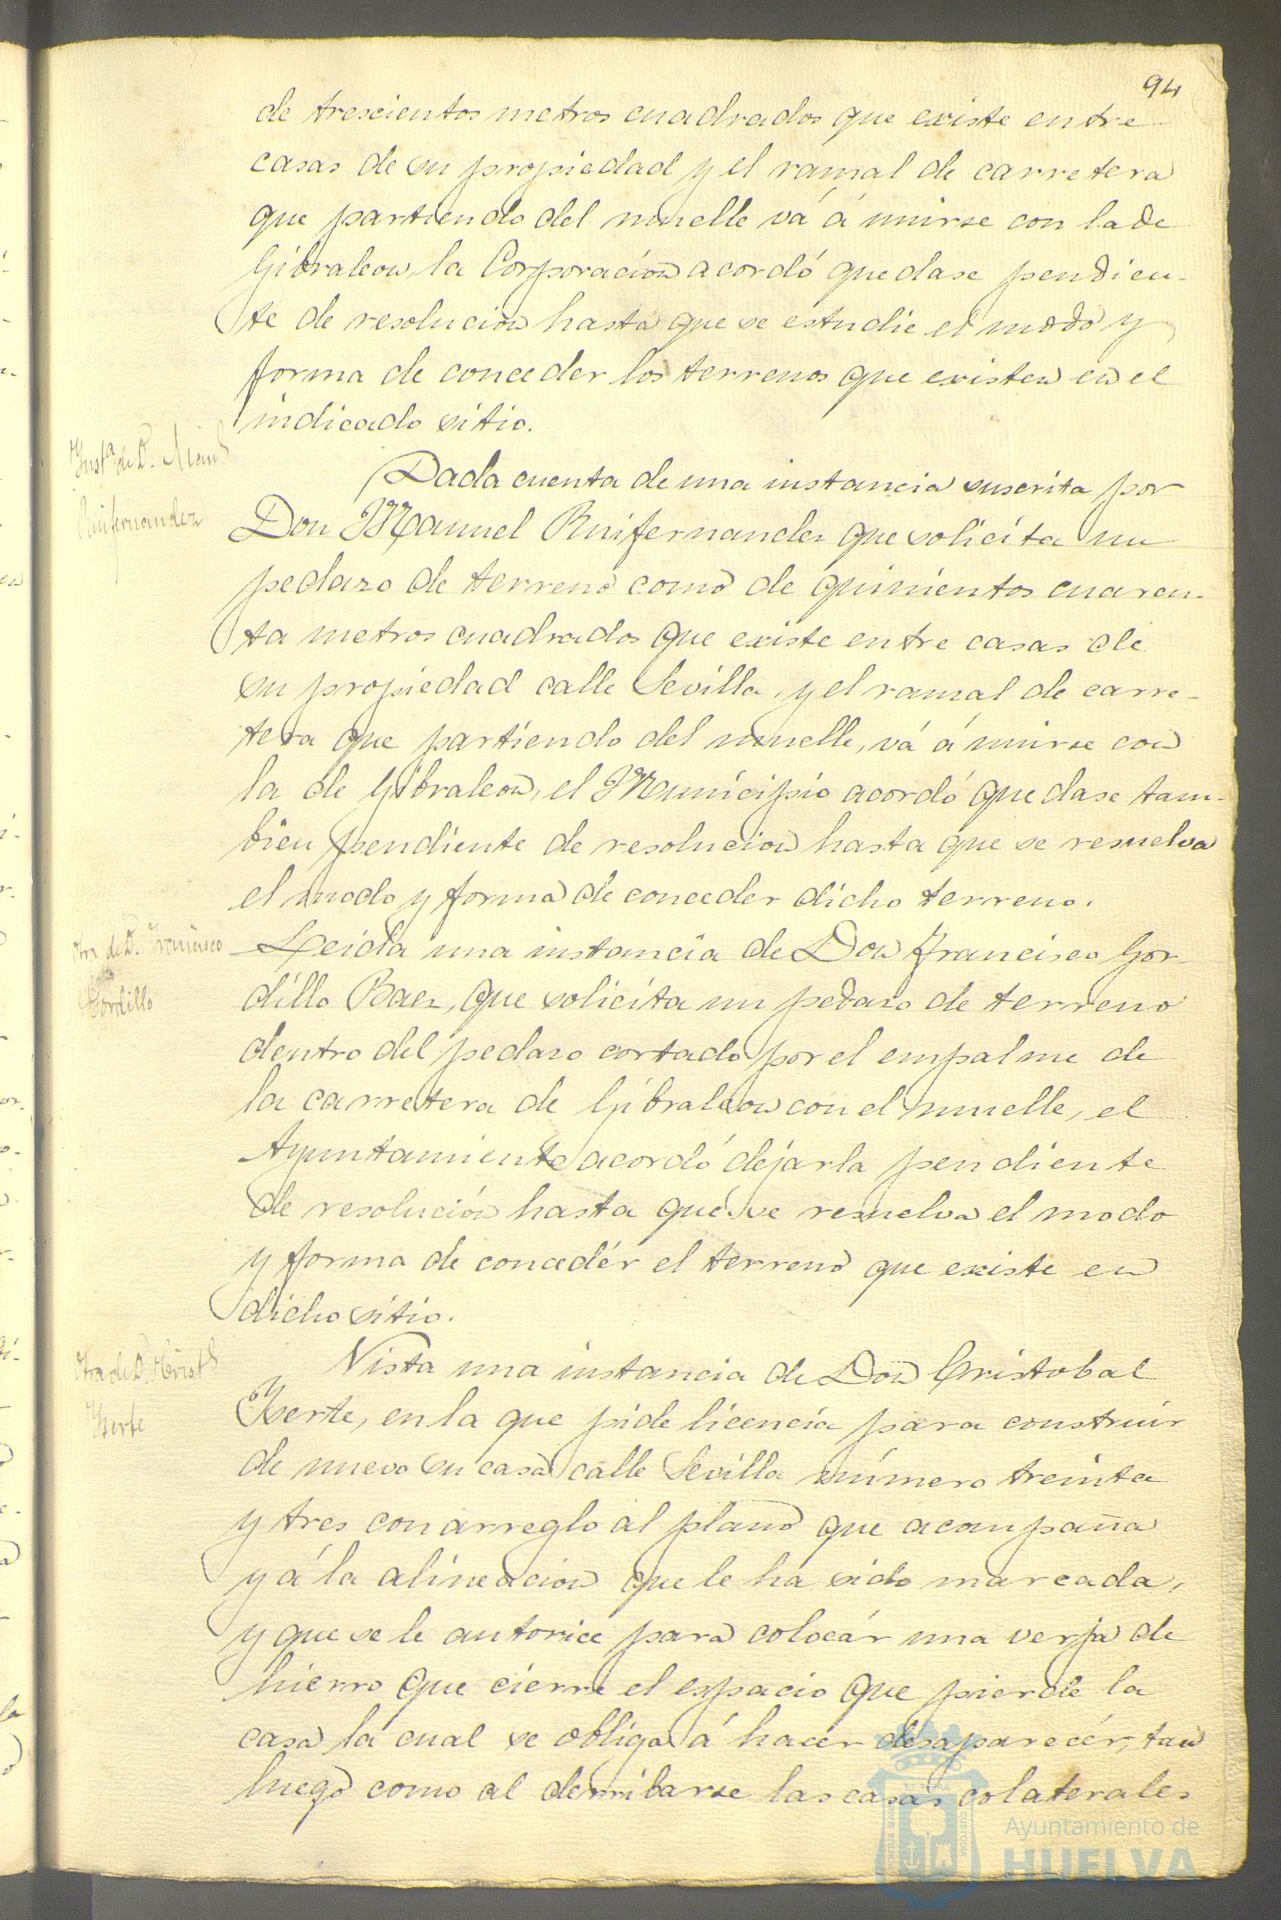 94
de trescientos metros cuadrados que existe entre
casas de su propiedad y el ramal de carretera
que partiendo del muelle vá á unirse con la de
Gibraleon, la Corporacion acordó quedase pendien-
te de resolucion hasta que se estudie el modo y
forma de conceder los terrenos que existen en el
indicado sitio.
Insta de D. Manl
Ruifernandez
Dada cuenta de una instancia suscrita por
Don Manuel Ruifernandez que solicita un
pedazo de terreno como de quinientos cuaren-
ta metros cuadrados que existe entre casas de
su propiedad calle Sevilla, y el ramal de carre-
tera que partiendo del muelle, vá á unirse con
la de Gibraleon, el Municipio acordó quedase tam-
bien pendiente de resolucion hasta que se resuelva
el modo y forma de conceder dicho terreno.
Otra de D. Francisco
Gordillo
Leida una instancia de Don Francisco Gor-
dillo Baez, que solicita un pedazo de terreno
dentro del pedazo cortado por el empalme de
la carretera de Gibraleon con el muelle, el
Ayuntamiento acordó dejarla pendiente
de resolución hasta que se resuelva el modo
y forma de concedér el terreno que existe en
dicho sitio.
Otra de D. Cristl
Yerte
Vista una instancia de Don Cristobal
Yerte, en la que pide licencia para construir
de nuevo su casa calle Sevilla número treinta
y tres con arreglo al plano que acompaña
y á la alineacion que le ha sido marcada,
y que se le autorice para colocár una verja de
hierro que cierre el espacio que pierde la
casa la cual se obliga á hacer desaparecér, tan
luego como al derribarse las casas colaterales
Ayuntamiento de
HUELVA